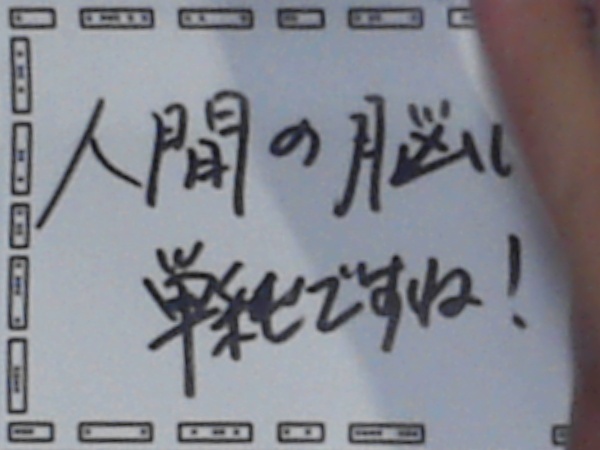 人間の脳は
単純ですね!